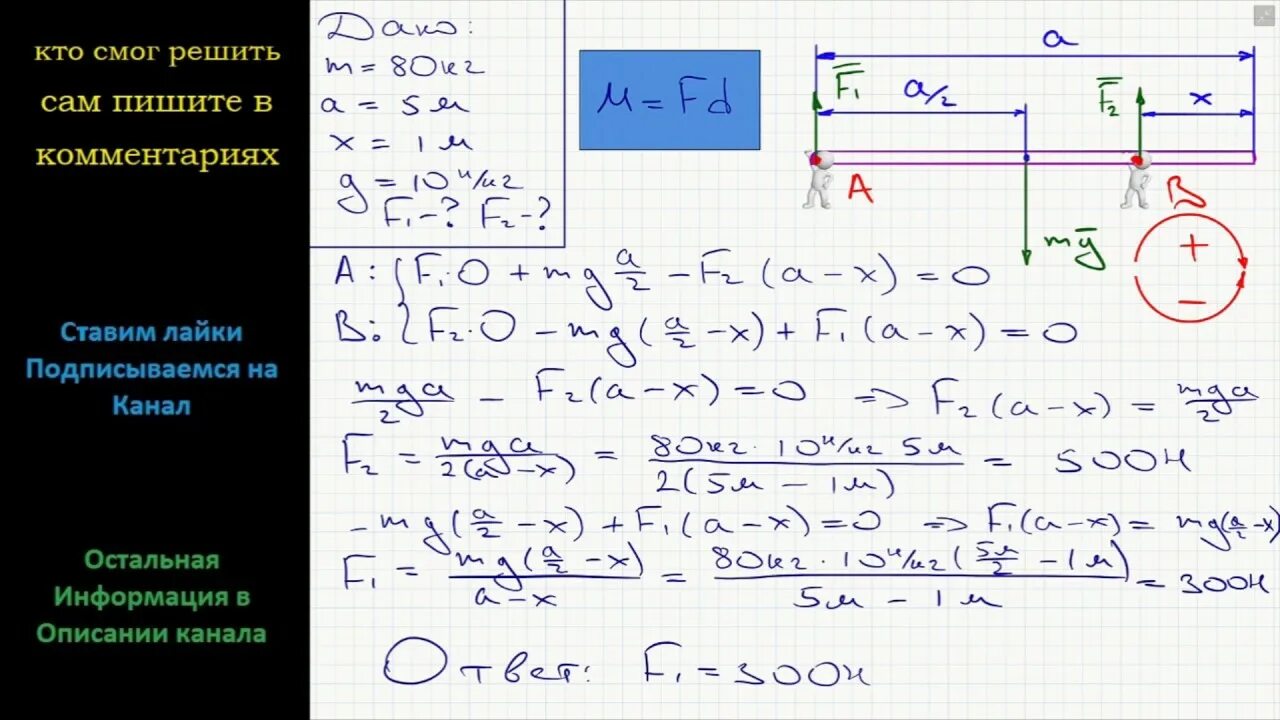 кто смог решить
сам пишите в
комментариях
Ставим лайки
Подписываемся на
Канал
Остальная
Информация в
Описании канала
Дано:
m = 80кг
a = 5м
x = 1м
g = 10 н/кг
F₁-? F₂-?
M = Fd
a
F₁
a/2
F₂
x
A
B
mg
+
−
A: { F₁·0 + mg a/2 − F₂(a−x) = 0
B: { F₂·0 − mg(a/2 −x) + F₁(a−x) = 0
mga/2 − F₂(a−x) = 0 => F₂(a−x) = mga/2
F₂ = mga/2(a−x) = 80кг·10 н/кг 5м/2(5м − 1м) = 500н
−mg(a/2 −x) + F₁(a−x) = 0 => F₁(a−x) = mg(a/2 −x)
F₁ = mg(a/2 −x)/a−x = 80кг·10 н/кг(5м/2 −1м)/5м − 1м = 300н
Ответ: F₁ = 300н